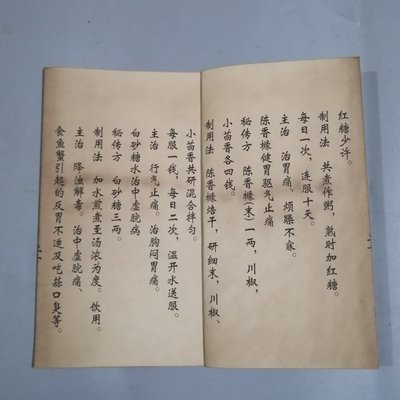 红糖少许。
制用法　共煮作粥，熟时加红糖。
每日一次，连服十天。
主治　治胃痛、烦躁不寐。
陈香橼健胃驱气止痛
秘传方　陈香橼(末)一两，川椒、
小茴香各四钱。
制用法　陈香橼焙干，研细末，川椒、
小茴香共研混合拌匀。
每服一钱，每日二次，温开水送服。
主治　行气止痛。治胸闷胃痛。
白砂糖水治中虚脘痛
秘传方　白砂糖三两。
制用法　加水煎煮至汤浓为度。饮用。
主治　降浊解毒。治中虚脘痛、
食鱼蟹引起的反胃不适及吃蒜口臭等。